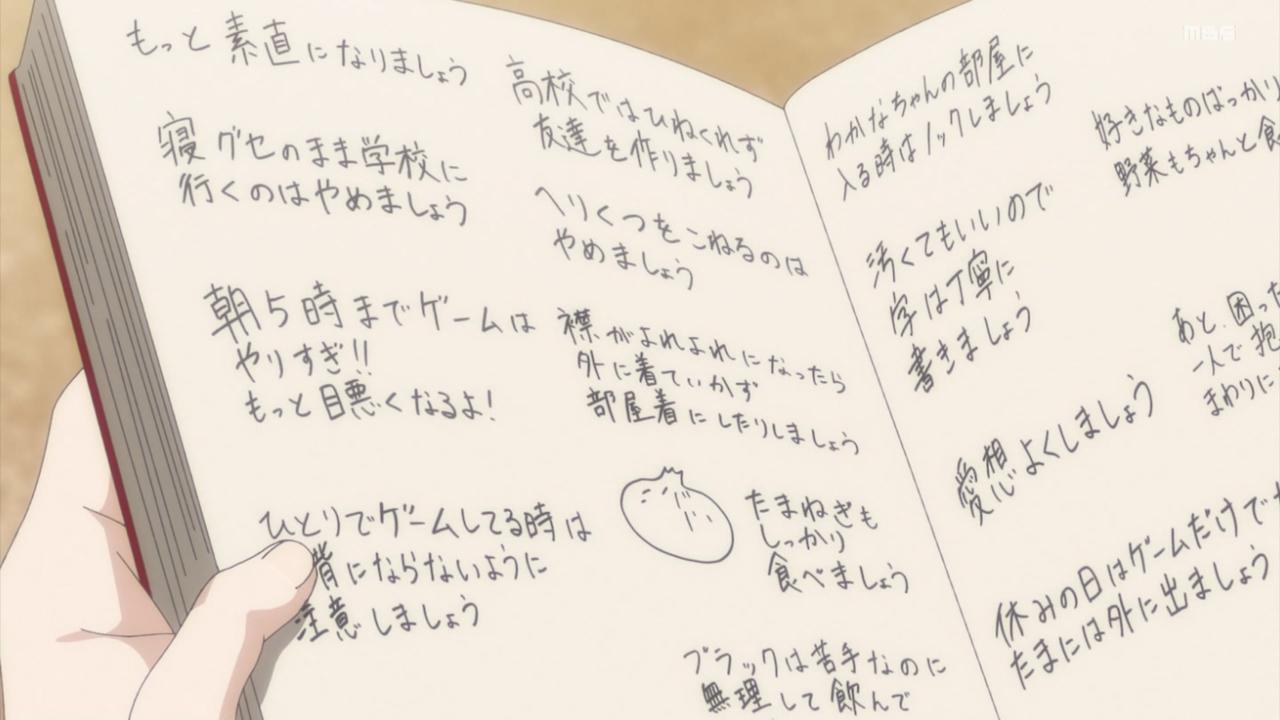 もっと素直になりましょう
寝グセのまま学校に
行くのはやめましょう
朝5時までゲームは
やりすぎ!!
もっと目悪くなるよ!
ひとりでゲームしてる時は
背にならないように
注意しましょう
高校ではひねくれず
友達を作りましょう
へりくつをこねるのは
やめましょう
襟がよれよれになったら
外に着ていかず
部屋着にしたりしましょう
たまねぎも
しっかり
食べましょう
ブラックは苦手なのに
無理して飲んで
わかなちゃんの部屋に
入る時はノックしましょう
汚くてもいいので
字は丁寧に
書きましょう
愛想よくしましょう
休みの日はゲームだけで
たまには外に出ましょう
好きなものばっかり
野菜もちゃんと食
あと、困った
一人で抱
まわりに
MBS